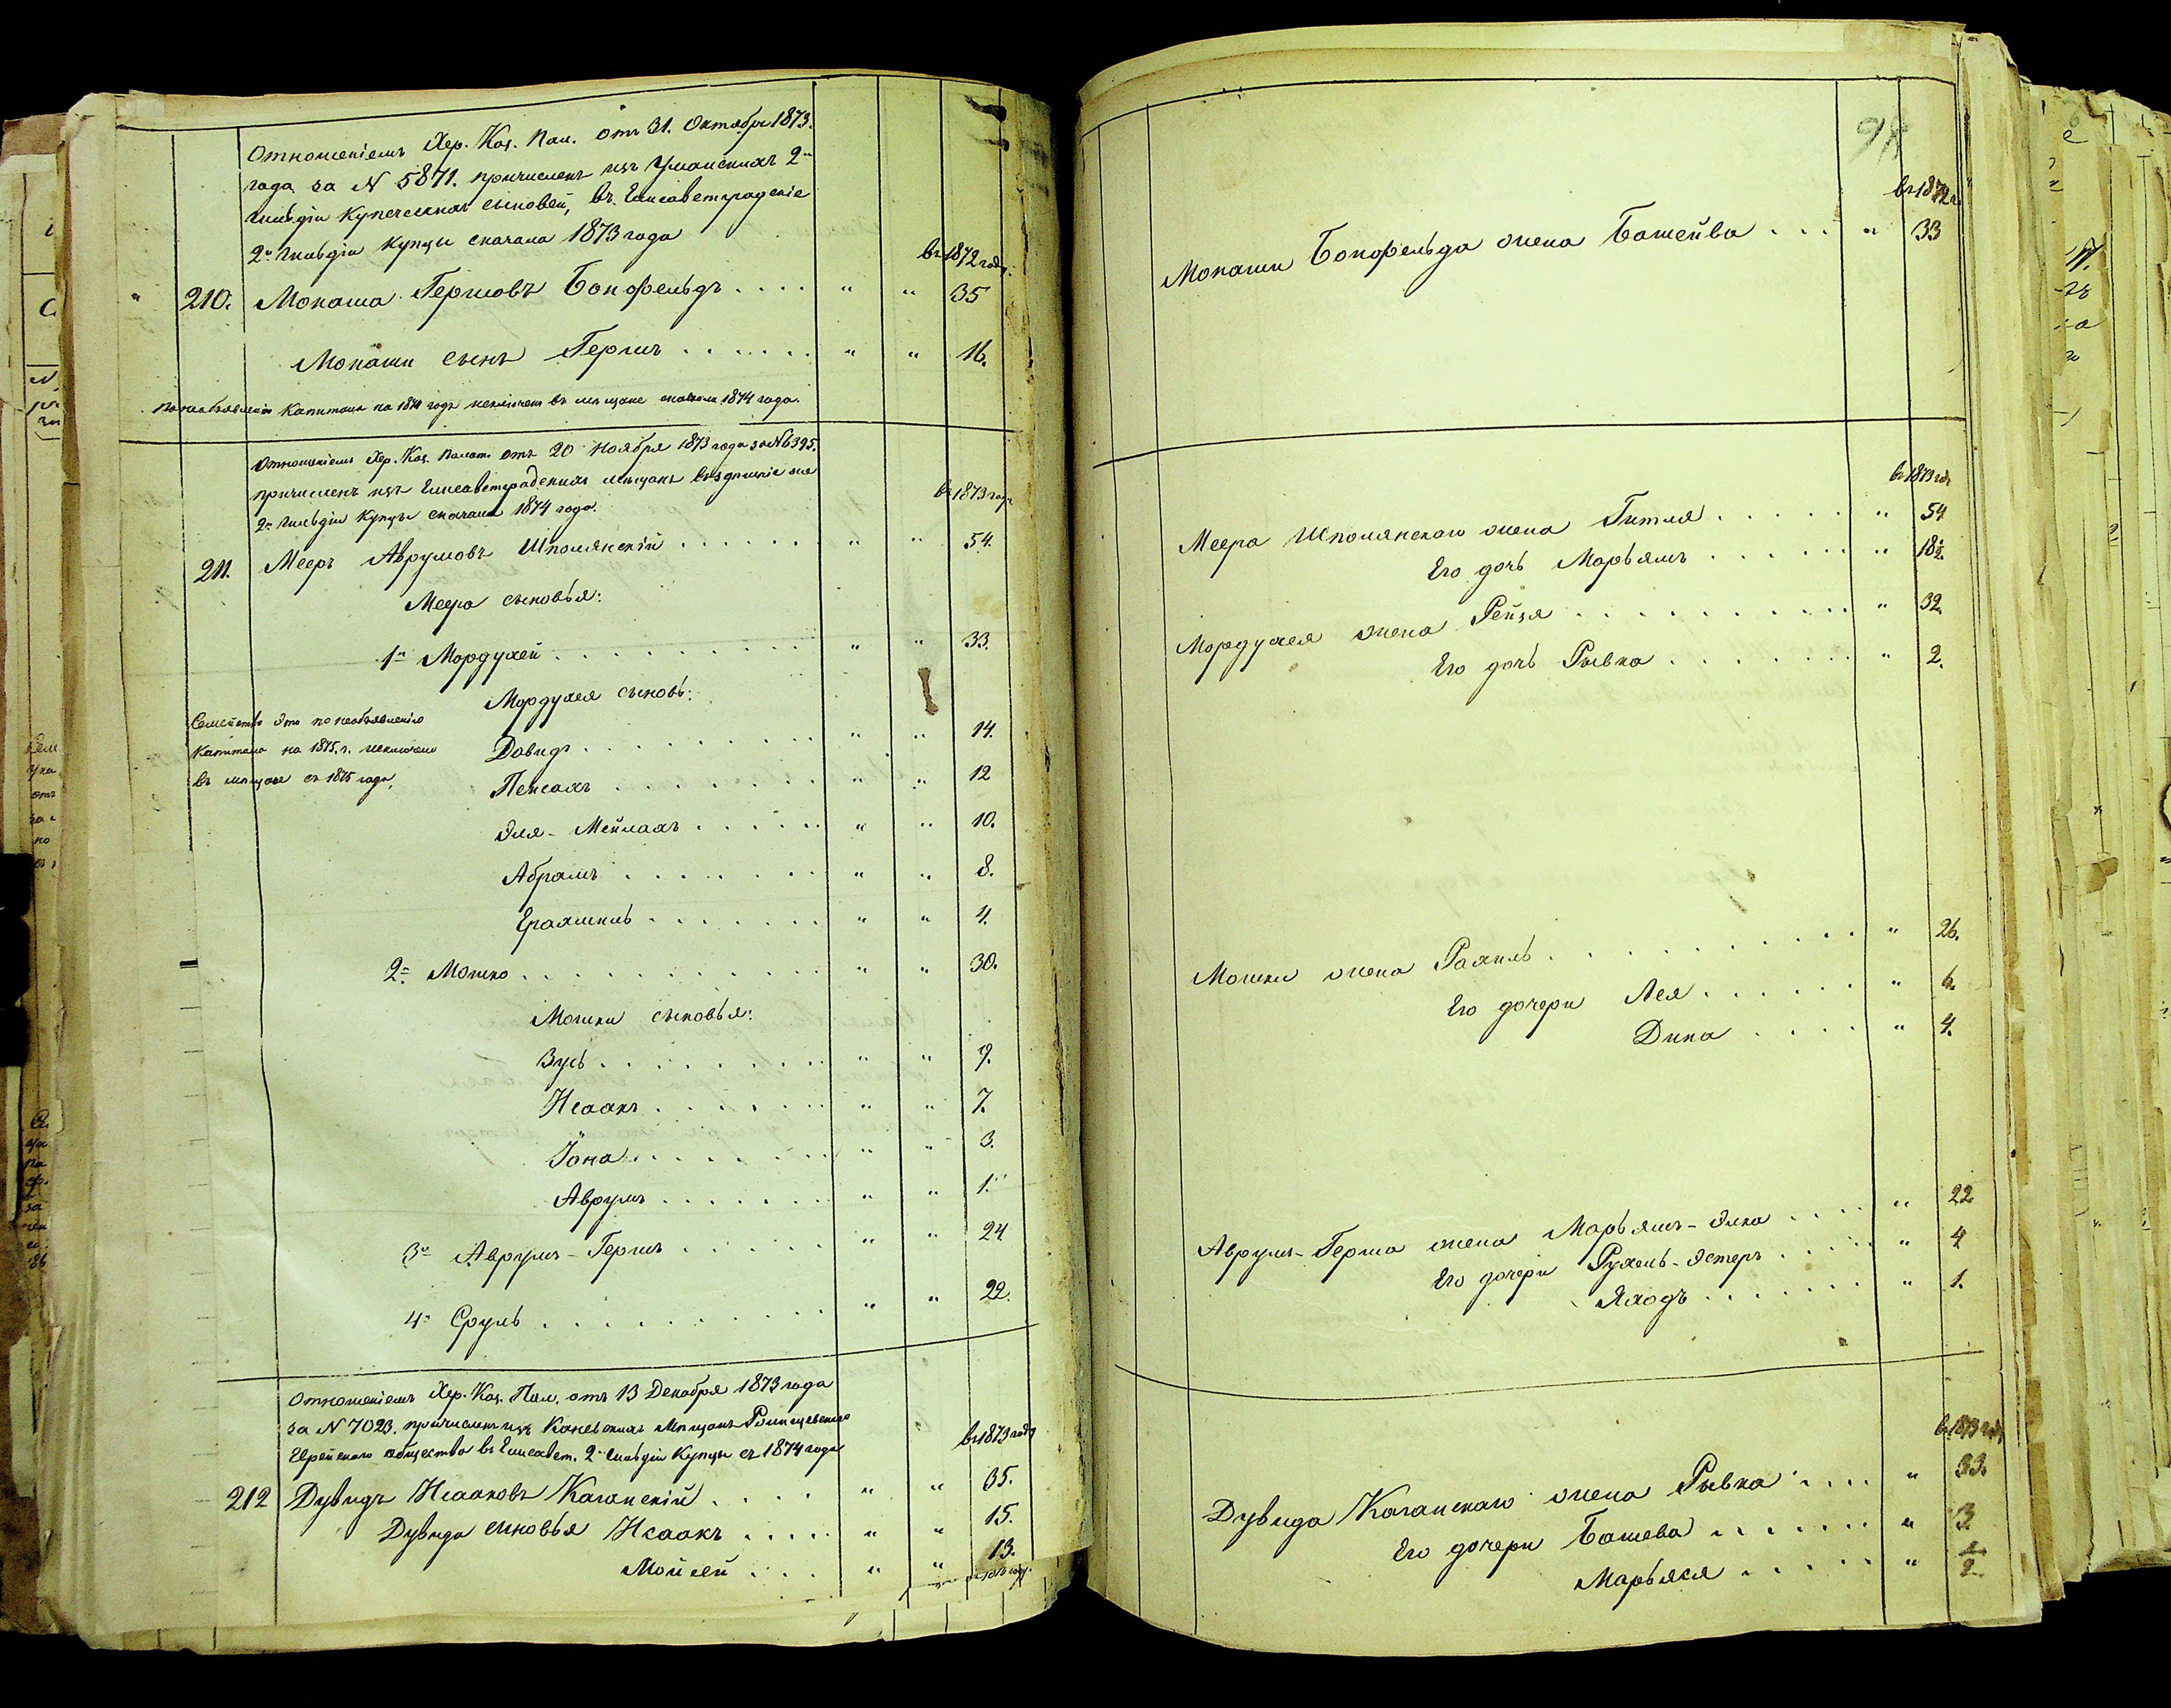 Отношеніемъ Хер. Каз. Пал. отъ 31. Октября 1873.
года за N 5871. причисленъ изъ Уманскихъ 2й
гильдіи купеческихъ сыновей, въ Елисаветградскіе
2й гильдіи купцы сначала 1873 года
въ 1872 году.
" 210. Монаша Гершовъ Бонфельдъ . . . . " " 35
Монаши сынъ Гершъ . . . . . . " " 16.
По необъявленію капитала на 1874 годъ исключенъ въ мещане сначала 1874 года.
Отношеніемъ Хер. Каз. Палат. отъ 20 Ноября 1873 года за N 6395.
причисленъ изъ Елисаветградскихъ мещанъ въ здешніе же
2й гильдіи купцы сначала 1874 года.
въ 1873 году
211. Мееръ Аврумовъ Шполянскій . . . . . . " " 54.
Меера сыновья:
1й Мордухей . . . . . . . . . " " 33.
Мордухея сыновь:
Семейство это по необъявленію
капитала на 1875 г. исключено
въ мещане съ 1875 года.
Довидъ . . . . . . . . . " " 14.
Пейсахъ . . . . . . . " " 12
Эля-Мейлахъ . . . . . . " " 10.
Абрамъ . . . . . . . " " 8.
Ерахмиль . . . . . . . " " 4.
2й Мошко . . . . . . . . . . . " " 30.
Мошки сыновья:
Зусь . . . . . . . . " " 9.
Исаакъ . . . . . . " " 7.
Іона . . . . . . . " " 3.
Аврумъ . . . . . . . " " 1.
3й Аврумъ-Гершъ . . . . . . " " 24
4й Сруль . . . . . . . . . . " " 22.
Отношеніемъ Хер. Каз. Пал. отъ 13 Декабря 1873 года
за N 7023. причисленъ изъ Каневскихъ мещанъ
Еврейскаго общества въ Елисавет. 2й гильдіи купцы съ 1874 года
въ 1873 году
212 Дувидъ Исааковъ Каганскій . . . . " " 35.
Дувида сыновья Исаакъ . . . . . " " 15.
Мойсей . . . . " " 13.
98
въ 1872 г.
Монаши Бонфельда жена Башейва . . . " 33
въ 1873 год
Меера Шполянскаго жена Гитля . . . . . . " 54
Его дочь Марьямъ . . . . . . " 18½
Мордухея жена Рейзя . . . . . . . . . . " 32.
Его дочь Рывка . . . . . . . " 2.
Мошки жена Рахиль . . . . . . . . . . . " 26.
Его дочери Лея . . . . . . " 6.
Дина . . . . . " 4.
Аврумъ-Герша жена Марьямъ-Элка . . . . " 22
Его дочери Рухель-Эстеръ . . . . . " 4
Яходъ . . . . . . " 1.
въ 1873 год
Дувида Каганскаго жена Рывка . . . . " 33.
Его дочери Башева . . . . . . . " 3.
Марьяся . . . . . . " ½